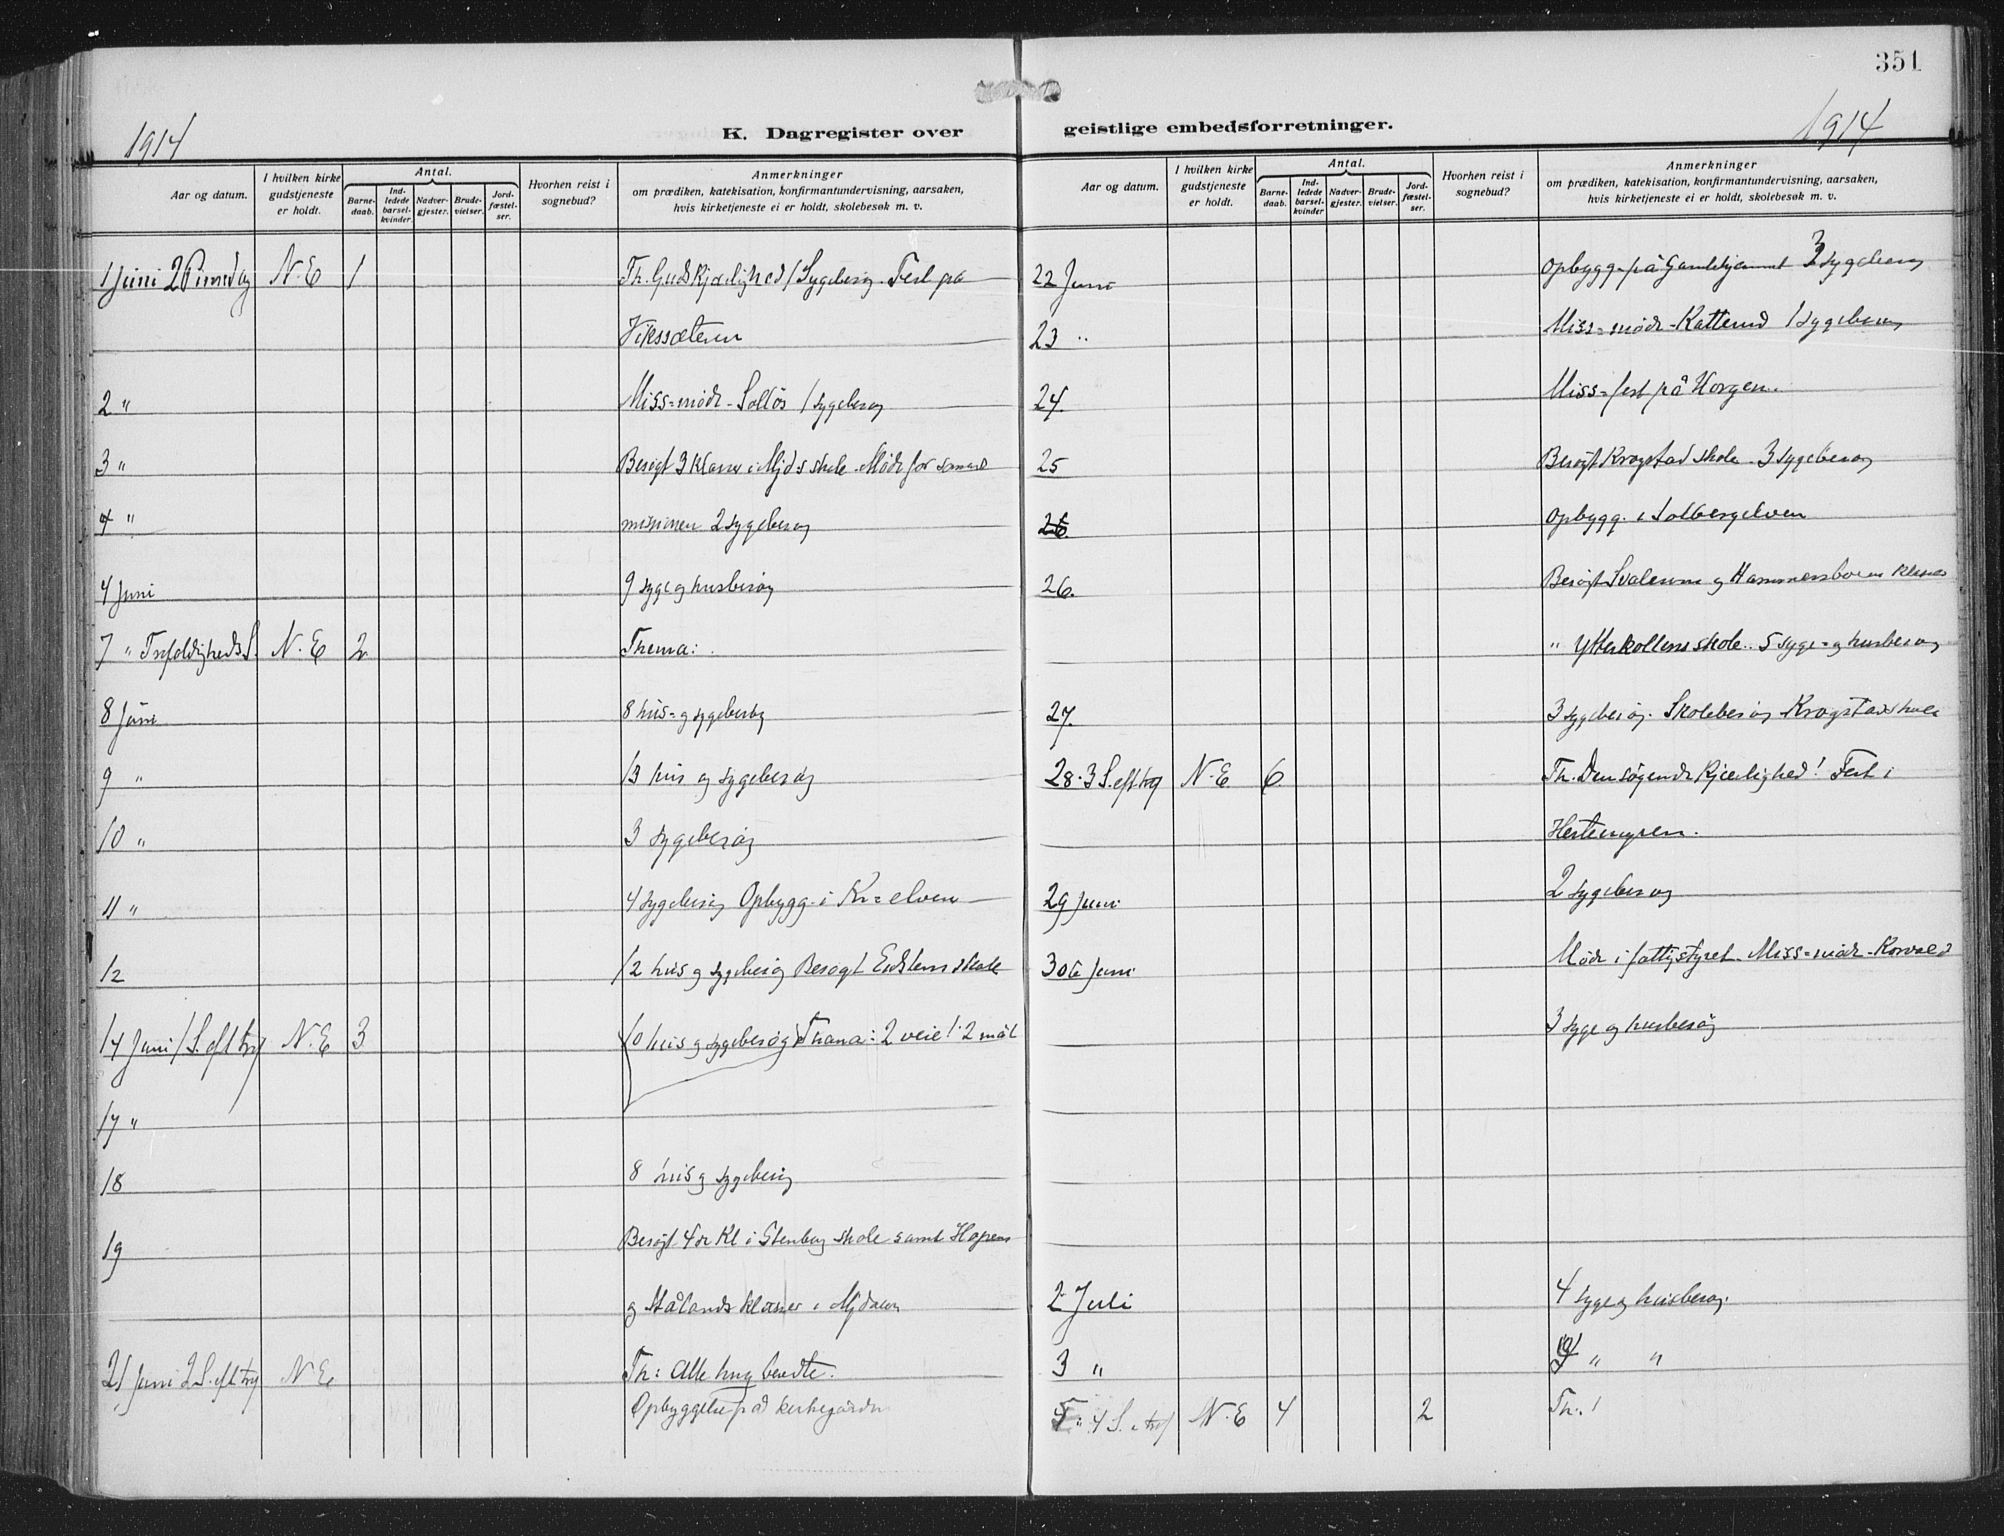 351
1914
K. Dagregister over geistlige embedsforretninger.
1914
Aar og datum.
I hvilken kirke gudstjeneste er holdt.
Antal.
Barne-daab.
Ind-ledede barsel-kvinder
Nadver-gjester.
Brude-vielser.
Jord-fæstel-ser.
Hvorhen reist i sognebud?
Anmerkninger
om prædiken, katekisation, konfirmantundervisning, aarsaken, hvis kirketjeneste ei er holdt, skolebesøk m. v.
1 Juni 2 Pinsedag N. E 1 Th. Guds kjærlighed 1 Sygebesøg. Fest på
Vikssæteren
2 " Miss=møde - Solløs 1 sygebesøg
3 " Besøgt 3 klasser i Mjds skole. Møde for
4 " missionen 2 sygebesøg
4 Juni 9 syge og husbesøg
7 " Trefoldigheds S. N. E 2 Thema:
8 Juni 8 hus= og sygebesøg
9 " 13 hus og sygebesøg
10 " 3 sygebesøg
11 " 4 sygebesøg Opbygg. i Kr=elven
12 12 hus og sygebesøg Besøgt skole
14 Juni 1 S. eft try N. E 3 10 hus og sygebesøg Thema: 2 veie! 2 mål
17 "
18 8 hus og sygebesøg
19 Besøgt 4de Kl i Stenberg skole samt
og klasser i Mjdalen
21 Juni 2 S. eft try N. E. Th: Alle
Opbyggelse på kirkegården
Aar og datum.
I hvilken kirke gudstjeneste er holdt.
Antal.
Barne-daab.
Ind-ledede barsel-kvinder
Nadver-gjester.
Brude-vielser.
Jord-fæstel-ser.
Hvorhen reist i sognebud?
Anmerkninger
om prædiken, katekisation, konfirmantundervisning, aarsaken, hvis kirketjeneste ei er holdt, skolebesøk m. v.
22 Juni Opbygg. på Gamlehjemmet 3 sygebesøg
23 " Miss=møde - Katterud 1 sygebesøg
24. Miss=fest på Horgen.
25 Besøgt Krogstad skole 3 sygebesøg
Opbygg. i Solbergelven
26. Besøgt og klasser
" Ytterkollens skole. 5 syge= og husbesøg
27. 3 sygebesøg. Skolebesøg Krogstad skole
28. 3 S. eft try N. E. 6. Th. Den søgende kjærlighed! Fest i
Hestemyren.
29 Juni 2 sygebesøg
30te Juni Møde i fattigstyret. Miss=møde - Korvald
3 syge og husbesøg
2 Juli 4 syge og husbesøg.
3 " " "
4 S. e. tref N. E 4 2 Th. !